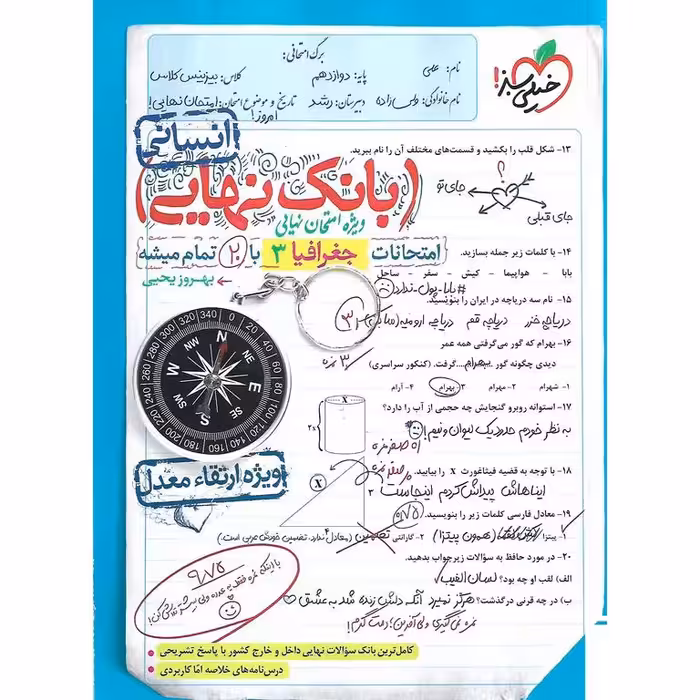 خیلی سبز!
برگ امتحانی:
نام: علی
پایه: دوازدهم
کلاس: بیزینس کلاس
نام خانوادگی: ولی‌زاده
دبیرستان: رشد
تاریخ و موضوع امتحان: امتحان نهایی!
امروز!
انسانی
۱۳- شکل قلب را بکشید و قسمت‌های مختلف آن را نام ببرید.
؟
جای تو
جای قبلی
(بانک نهایی)
ویژه امتحان نهایی
امتحانات جغرافیا ۳ با ۲۰ تمام میشه
بهروز یحیی
۱۴- با کلمات زیر جمله بسازید.
بابا - هواپیما - کیش - سفر - ساحل
#بابا-پول-ندارد
۱۵- نام سه دریاچه در ایران را بنویسید.
دریاچه خزر دریاچه قم دریاچه ارومیه
۱۶- بهرام که گور می‌گرفتی همه عمر
دیدی چگونه گور ..بهرام.. گرفت. (کنکور سراسری)
۳ نمره
۱- شهرام ۲- مهرام ۳- بهرام ۴- آرام
۱۷- استوانه روبرو گنجایش چه حجمی از آب را دارد؟
به نظر خودم حدود یک لیوان و نیم!
X
2x
۱۸- با توجه به قضیه فیثاغورث X را بیابید.
ایناهاش پیداش کردم اینجاست
X
۳
۴
۱۹- معادل فارسی کلمات زیر را بنویسید.
۰/۷۵
۱- پیتزا (همون پیتزا) ۲- گارانتی تضمین (معادل ندارد. تضمین خودش عربی است.)
۲۰- در مورد حافظ به سؤالات زیر جواب بدهید.
الف) لقب او چه بود؟ لسان الغیب
ب) در چه قرنی درگذشت؟ هرگز نمیرد آنکه دلش زنده شد به عشق
نمره نمی‌گیری ولی آفرین! دمت گرم!
۹/۷۵
با اینکه نمره فقط یه عدده ولی بیشتر تلاش کن!
N
NE
E
SE
S
SW
W
NW
0 20 40 60 80 100 120 140 160 180 200 220 240 260 280 300 320 340
ویژه ارتقاء معدل
کامل‌ترین بانک سؤالات نهایی داخل و خارج کشور با پاسخ تشریحی
درس‌نامه‌های خلاصه امّا کاربردی